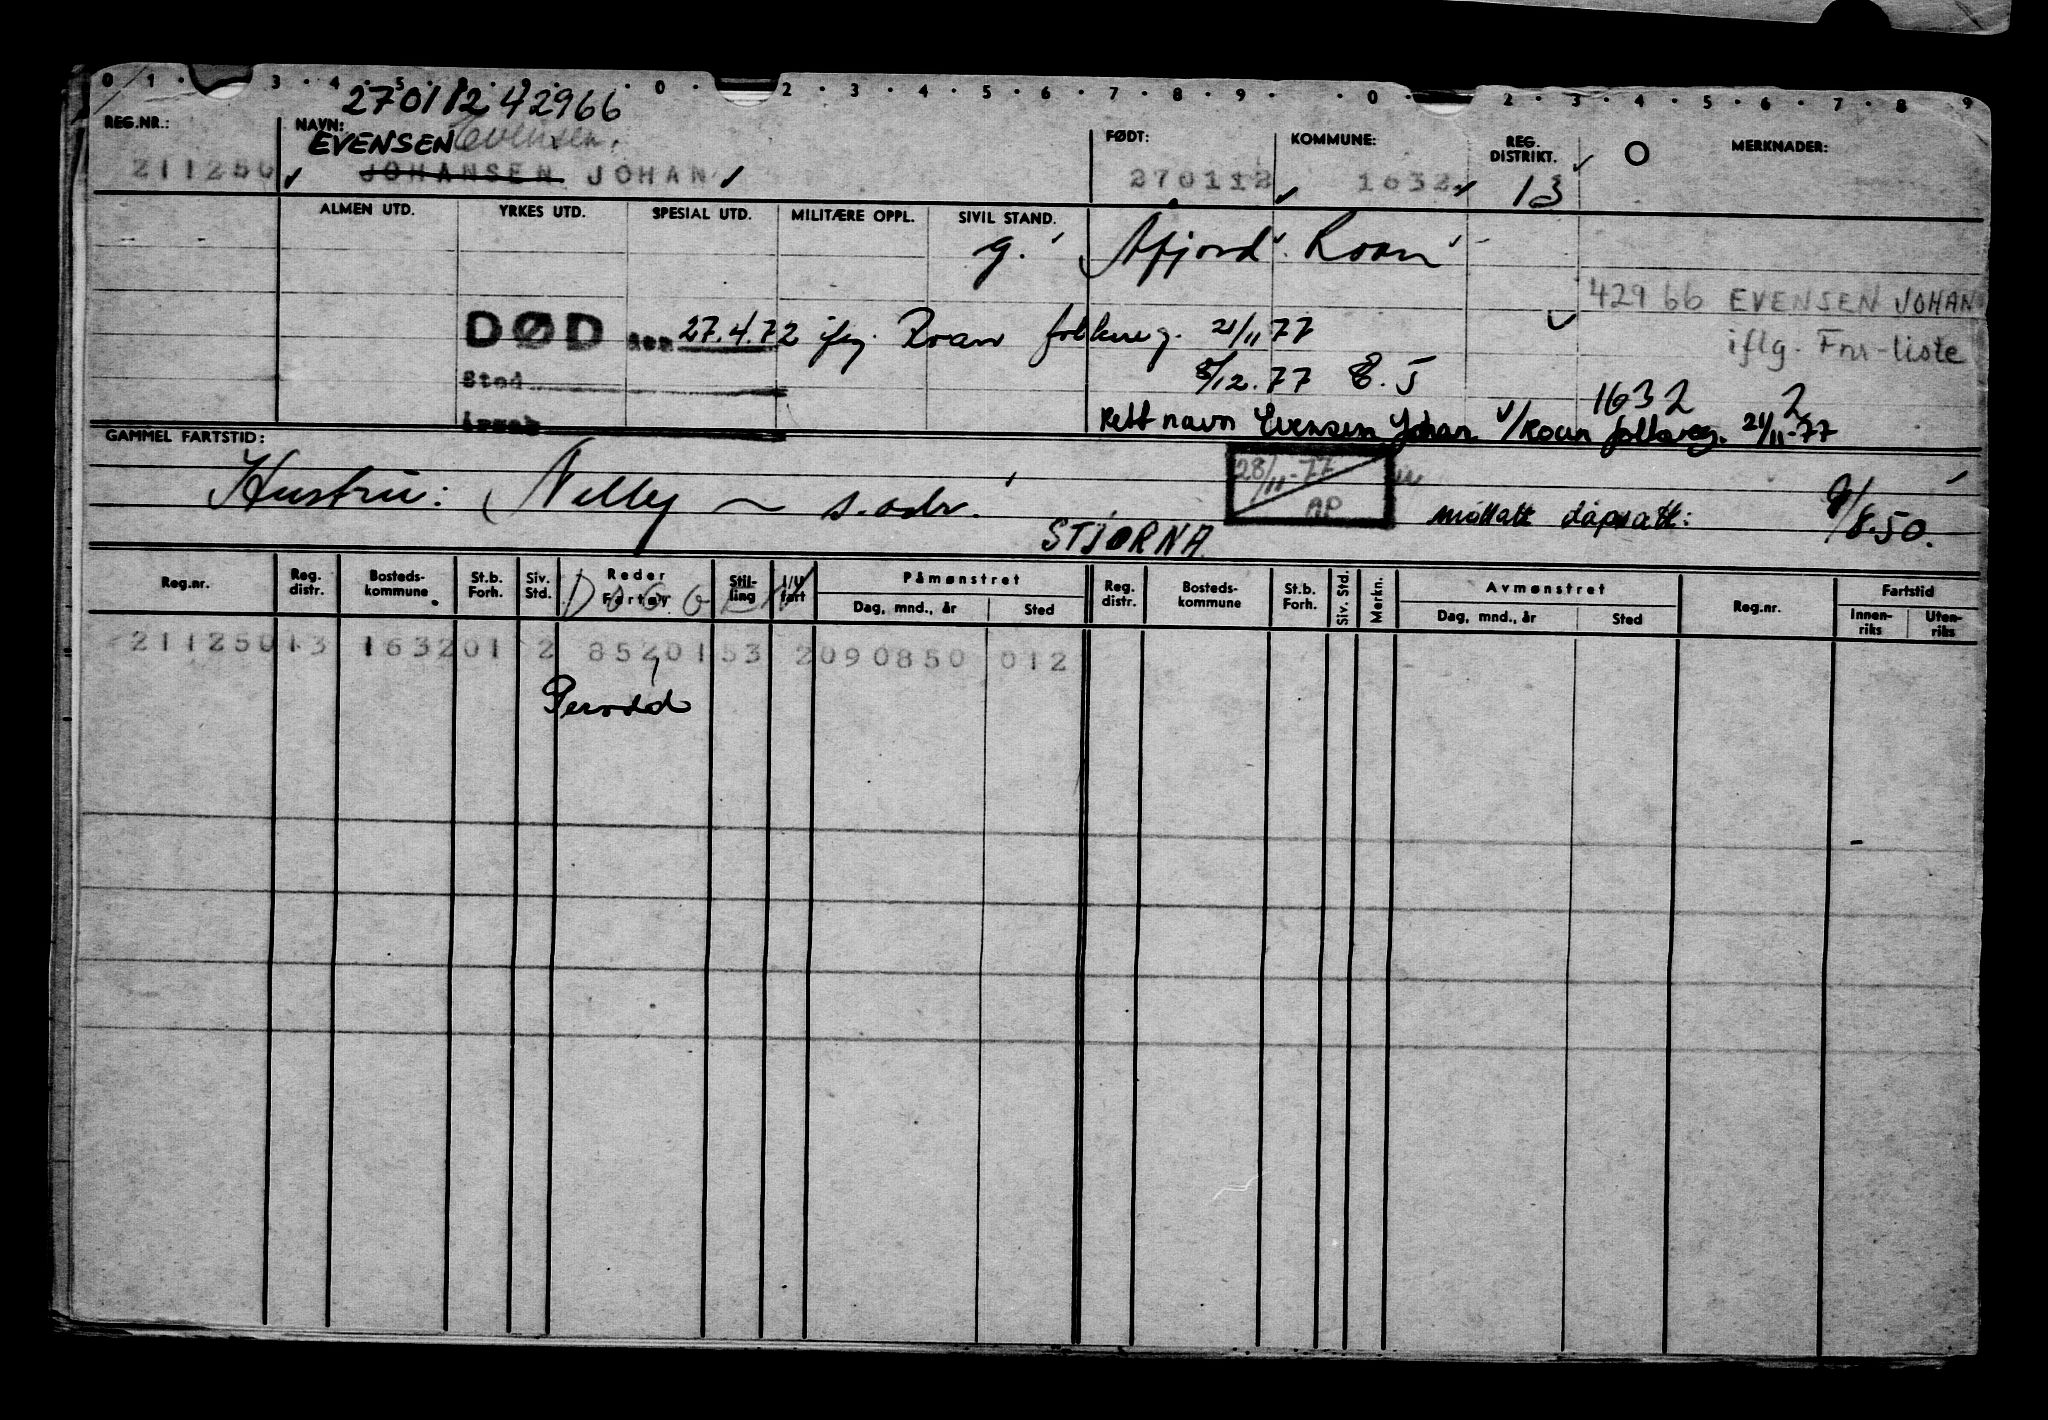 0 1 3 4 5 0 2 3 4 5 6 7 8 9 0 2 3 4 5 6 7 8 9
270112 42966
REG.NR.: NAVN: FØDT: KOMMUNE: REG. DISTRIKT. O MERKNADER:
EVENSEN Evensen.
211250 JOHANSEN JOHAN 270112 1632 13
ALMEN UTD. YRKES UTD. SPESIAL UTD. MILITÆRE OPPL. SIVIL STAND.
g. Åfjord. Roan
42966 EVENSEN JOHAN
DØD den 27.4.72 iflg. Roan folkereg. 21/11 77
iflg. Fnr-liste
Sted 8/12.77
1632 2
Rett navn Evensen Johan v/Roan folkereg. 21/11-77
GAMMEL FARTSTID:
28/11-77
AP
Hustru: Nelly s. adr.
mottatt dåpsatt: 9/8.50.
STJØRNA
Reg.nr. Reg. distr. Bosteds- kommune St.b. Forh. Siv. Std. Reder Fartøy Stil- ling I/U fart Påmønstret Dag, mnd., år Sted Reg. distr. Bosteds- kommune St.b. Forh. Siv. Std. Merkn. Avmønstret Dag, mnd., år Sted Reg.nr. Fartstid Innen- riks Uten- riks
211250 13 1632 01 2 85201 53 2 090850 012